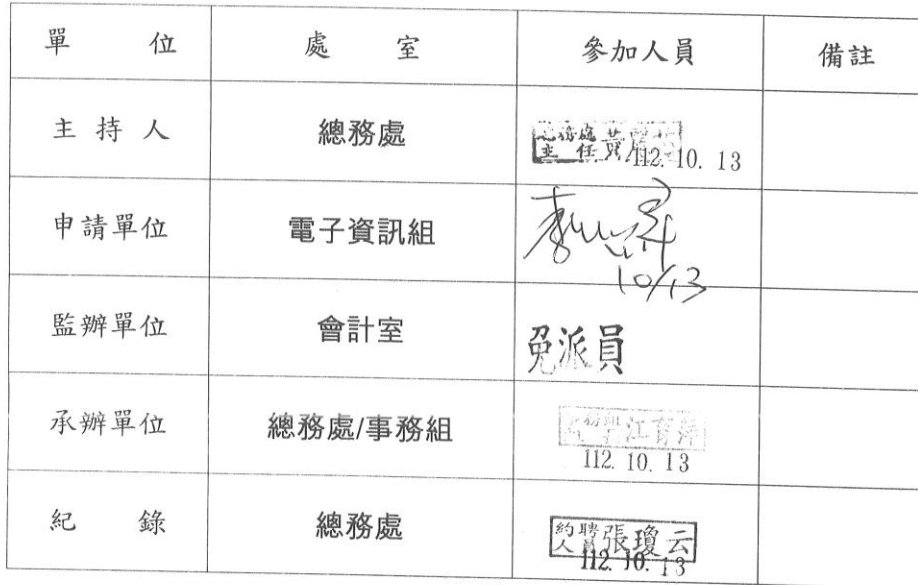 單 位 處 室 參加人員 備註
主 持 人 總務處 總務處
主 任 黃 112.10.13
申請單位 電子資訊組 李
10/13
監辦單位 會計室 免派員
承辦單位 總務處/事務組 江育萍
112.10.13
紀 錄 總務處 約聘
人員 張瓊云
112.10.13